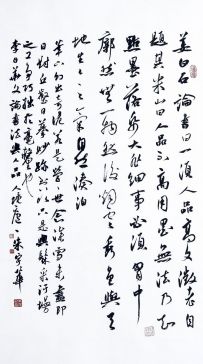 姜白石論書曰一須人品高文徵老自
題其米山曰人品不高用墨無法乃知
點墨落紙大非細事必須胸中
廓然無一物然後烟雲秀色與天
地生生之氣自然湊泊
筆下幻出奇詭若是營營世念澡雪未盡即
日對丘壑日摹妙迹到頭只與髹采圬墁
之工爭巧拙於毫釐也
李日華文論書法與品人